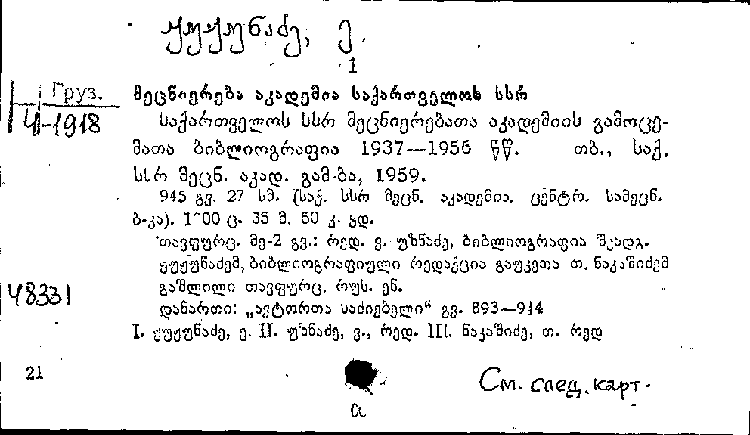 ჟუჟუნაძე, ე.
1
Груз.
4-1918
მეცნიერება აკადემია საქართველოს სსრ
საქართველოს სსრ მეცნიერებათა აკადემიის გამოცე-
მათა ბიბლიოგრაფია 1937—1956 წწ. თბ., საქ.
სსრ მეცნ. აკად. გამ-ბა, 1959.
945 გვ. 27 სმ. (საქ. სსრ მეცნ. აკადემია. ცენტრ. სამეცნ.
ბ-კა). ც. 35 მ. 50 კ. ყდ.
თავფურც. მე-2 გვ.: რედ. ვ. უზნაძე, ბიბლიოგრაფია შეადგ.
ჟუჟუნაძემ, ბიბლიოგრაფიული რედაქცია გაუკეთა თ. ნაკაშიძემ
გაშლილი თავფურც. რუს. ენ.
48331
დანართი: „ავტორთა საძიებელი“ გვ. 893—944
I. ჟუჟუნაძე, ე. II. უზნაძე, ვ., რედ. III. ნაკაშიძე, თ. რედ
21
См. след. карт.